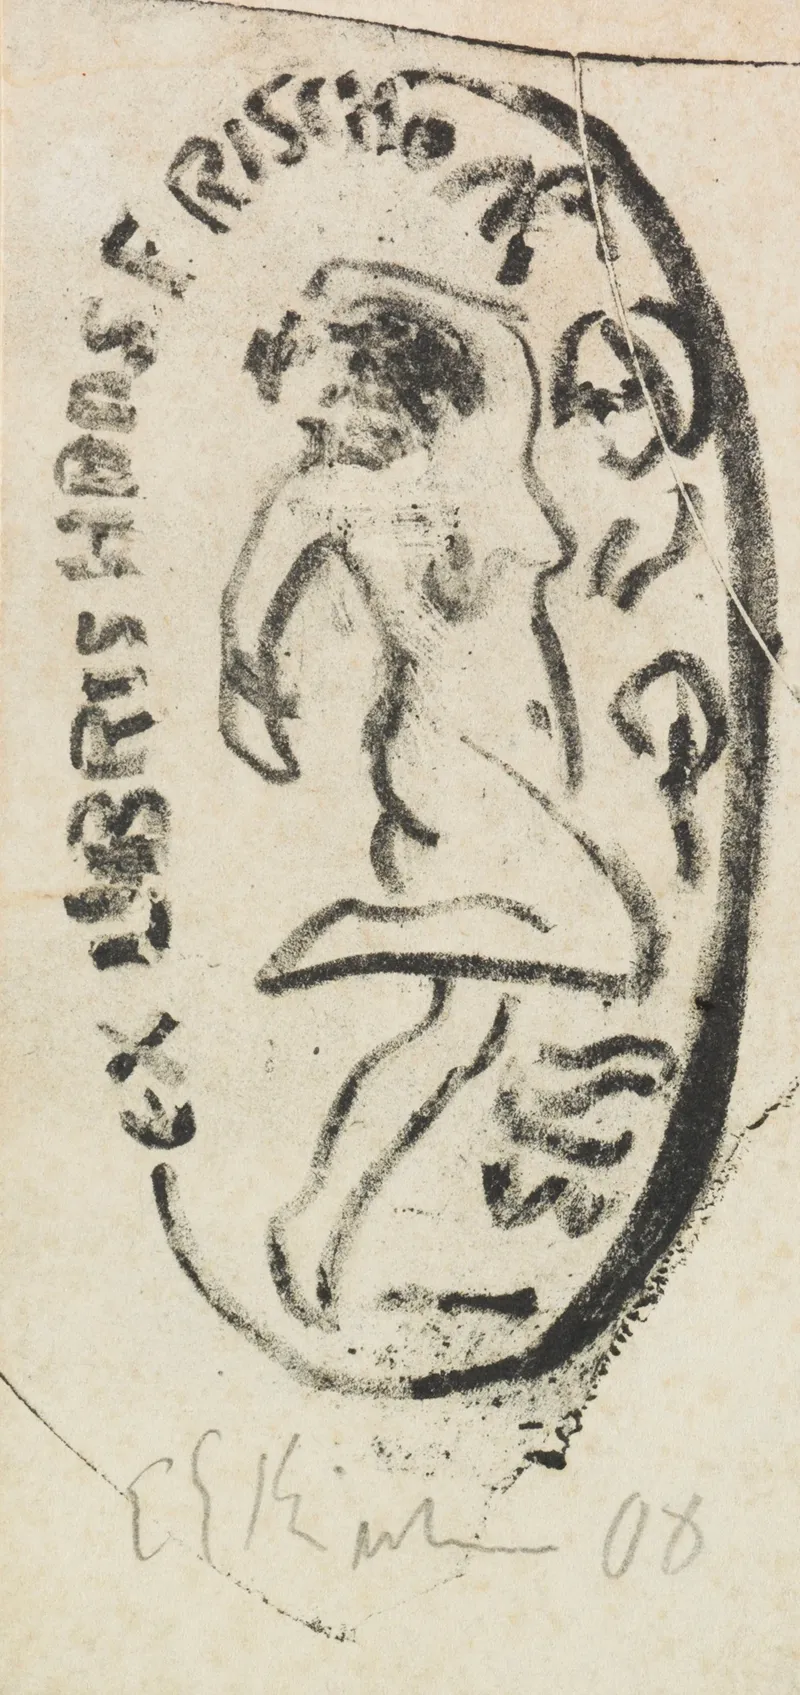 EX LIBRIS HANS FRISCH
E L Kirchner 08